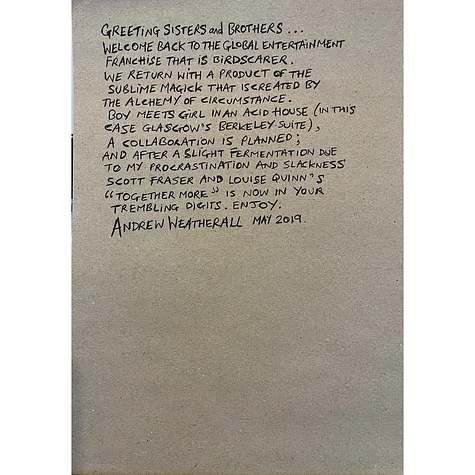 GREETING SISTERS and BROTHERS ...
WELCOME BACK TO THE GLOBAL ENTERTAINMENT
FRANCHISE THAT IS BIRDSCARER.
WE RETURN WITH A PRODUCT OF THE
SUBLIME MAGICK THAT IS CREATED BY
THE ALCHEMY OF CIRCUMSTANCE.
BOY MEETS GIRL IN AN ACID HOUSE (IN THIS
CASE GLASGOW'S BERKELEY SUITE),
A COLLABORATION IS PLANNED;
AND AFTER A SLIGHT FERMENTATION DUE
TO MY PROCRASTINATION AND SLACKNESS
SCOTT FRASER AND LOUISE QUINN'S
"TOGETHER MORE" IS NOW IN YOUR
TREMBLING DIGITS. ENJOY.
ANDREW WEATHERALL MAY 2019.